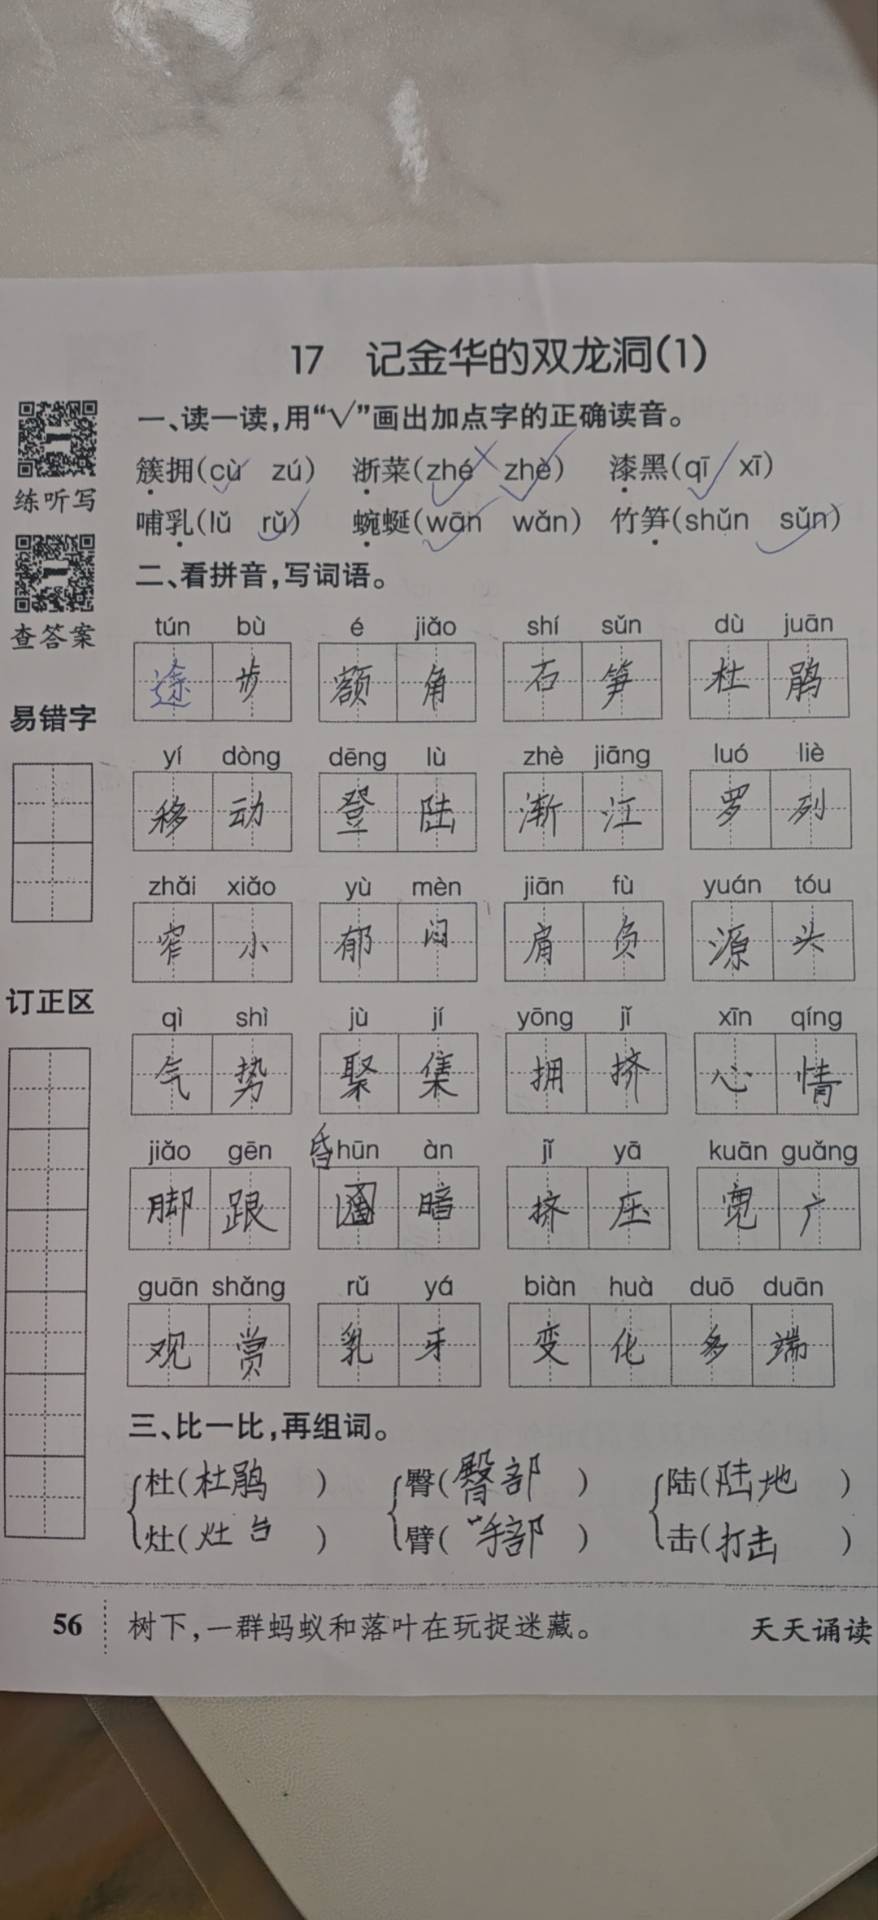 17 记金华的双龙洞(1)
一、读一读,用“√”画出加点字的正确读音。
练听写
簇拥(cù zú) 浙菜(zhé zhè) 漆黑(qī xī)
哺乳(lǔ rǔ) 蜿蜒(wān wǎn) 竹笋(shǔn sǔn)
查答案
二、看拼音,写词语。
tún bù é jiǎo shí sǔn dù juān
步 额角 石笋 杜鹃
易错字
yí dòng dēng lù zhè jiāng luó liè
移动 登陆 浙江 罗列
zhǎi xiǎo yù mèn jiān fù yuán tóu
窄小 郁闷 肩负 源头
订正区
qì shì jù jí yōng jǐ xīn qíng
气势 聚集 拥挤 心情
jiǎo gēn 昏 hūn àn jǐ yā kuān guǎng
脚跟 暗 挤压 宽广
guān shǎng rǔ yá biàn huà duō duān
观赏 乳牙 变化多端
三、比一比,再组词。
杜(杜鹃) 臀(臀部) 陆(陆地)
灶(灶台) 臂(手部) 击(打击)
56 树下,一群蚂蚁和落叶在玩捉迷藏。 天天诵读